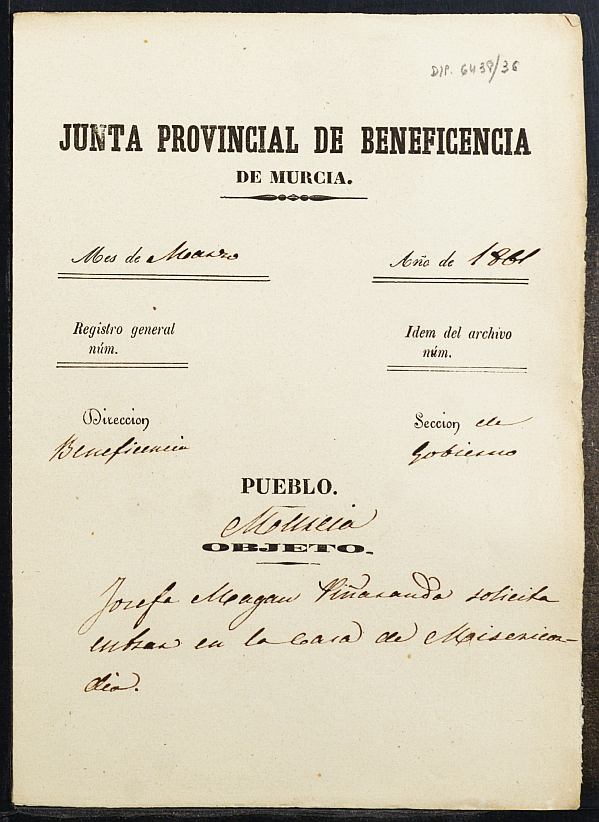 DIP. 6438/36
JUNTA PROVINCIAL DE BENEFICENCIA
DE MURCIA.
Mes de Marzo
Año de 1861
Registro general
núm.
Idem del archivo
núm.
Direccion
Beneficencia
Seccion de
Gobierno
PUEBLO.
Murcia
OBJETO.
Josefa Magan solicita
entrar en la Casa de Misericor-
dia.